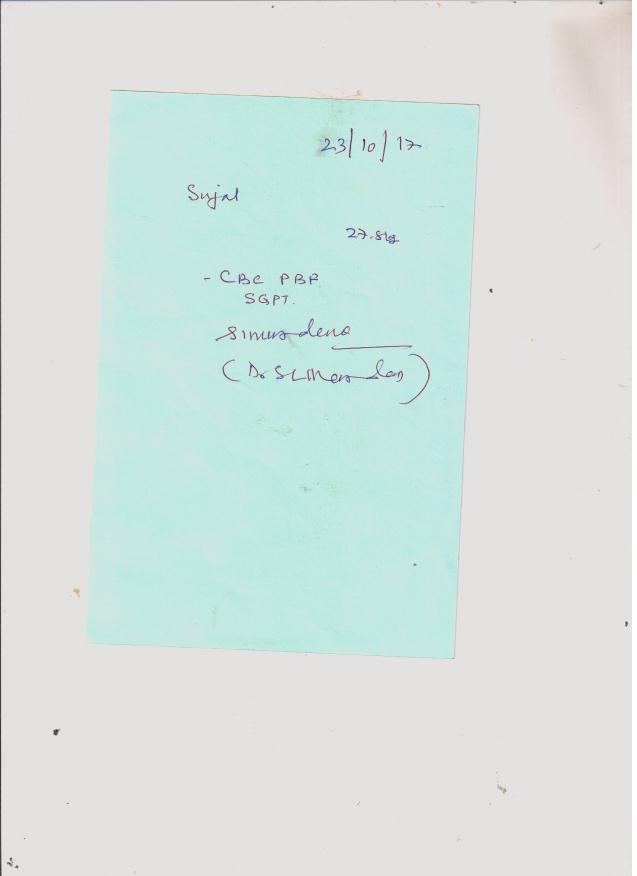 23/10/17
Sujal
27.8kg
- CBC PBF
SGPT.
(Dr